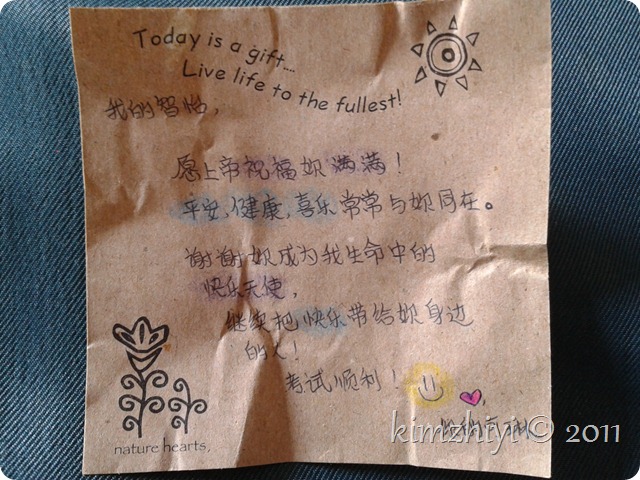 Today is a gift....
Live life to the fullest!
我的智怡,
愿上帝祝福妳满满!
平安,健康,喜乐常常与妳同在。
谢谢妳成为我生命中的
快乐天使,
继续把快乐带给妳身边
的人!
考试顺利!
nature hearts,
kimzhiyi© 2011